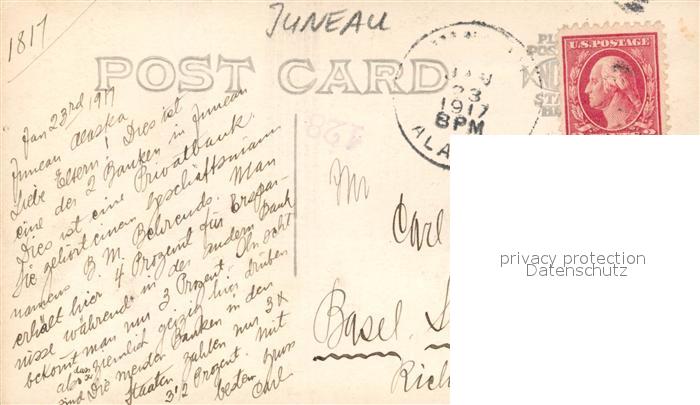 1817
JUNEAU
POST CARD
JAN
23
1917
8PM
ALA
U.S. POSTAGE
128
Jan 23rd 1917
Juneau Alaska
Liebe Eltern! Dies ist
eine der 2 Banken in Juneau
Dies ist eine Privatbank.
Sie gehört einem Geschäftsmann
namens B. M. Behrends. Man
erhält hier 4 Prozent für Erspar-
nisse während in der andern Bank
bekommt man nur 3 Prozent.
also ziemlich geizig hier drüben
sind die meisten Banken in den
Staaten zahlen nur 3 &
3 1/2 Prozent. Mit
besten Gruss
Carl
Mr
Carl
Basel. S
Rich
privacy protection
Datenschutz